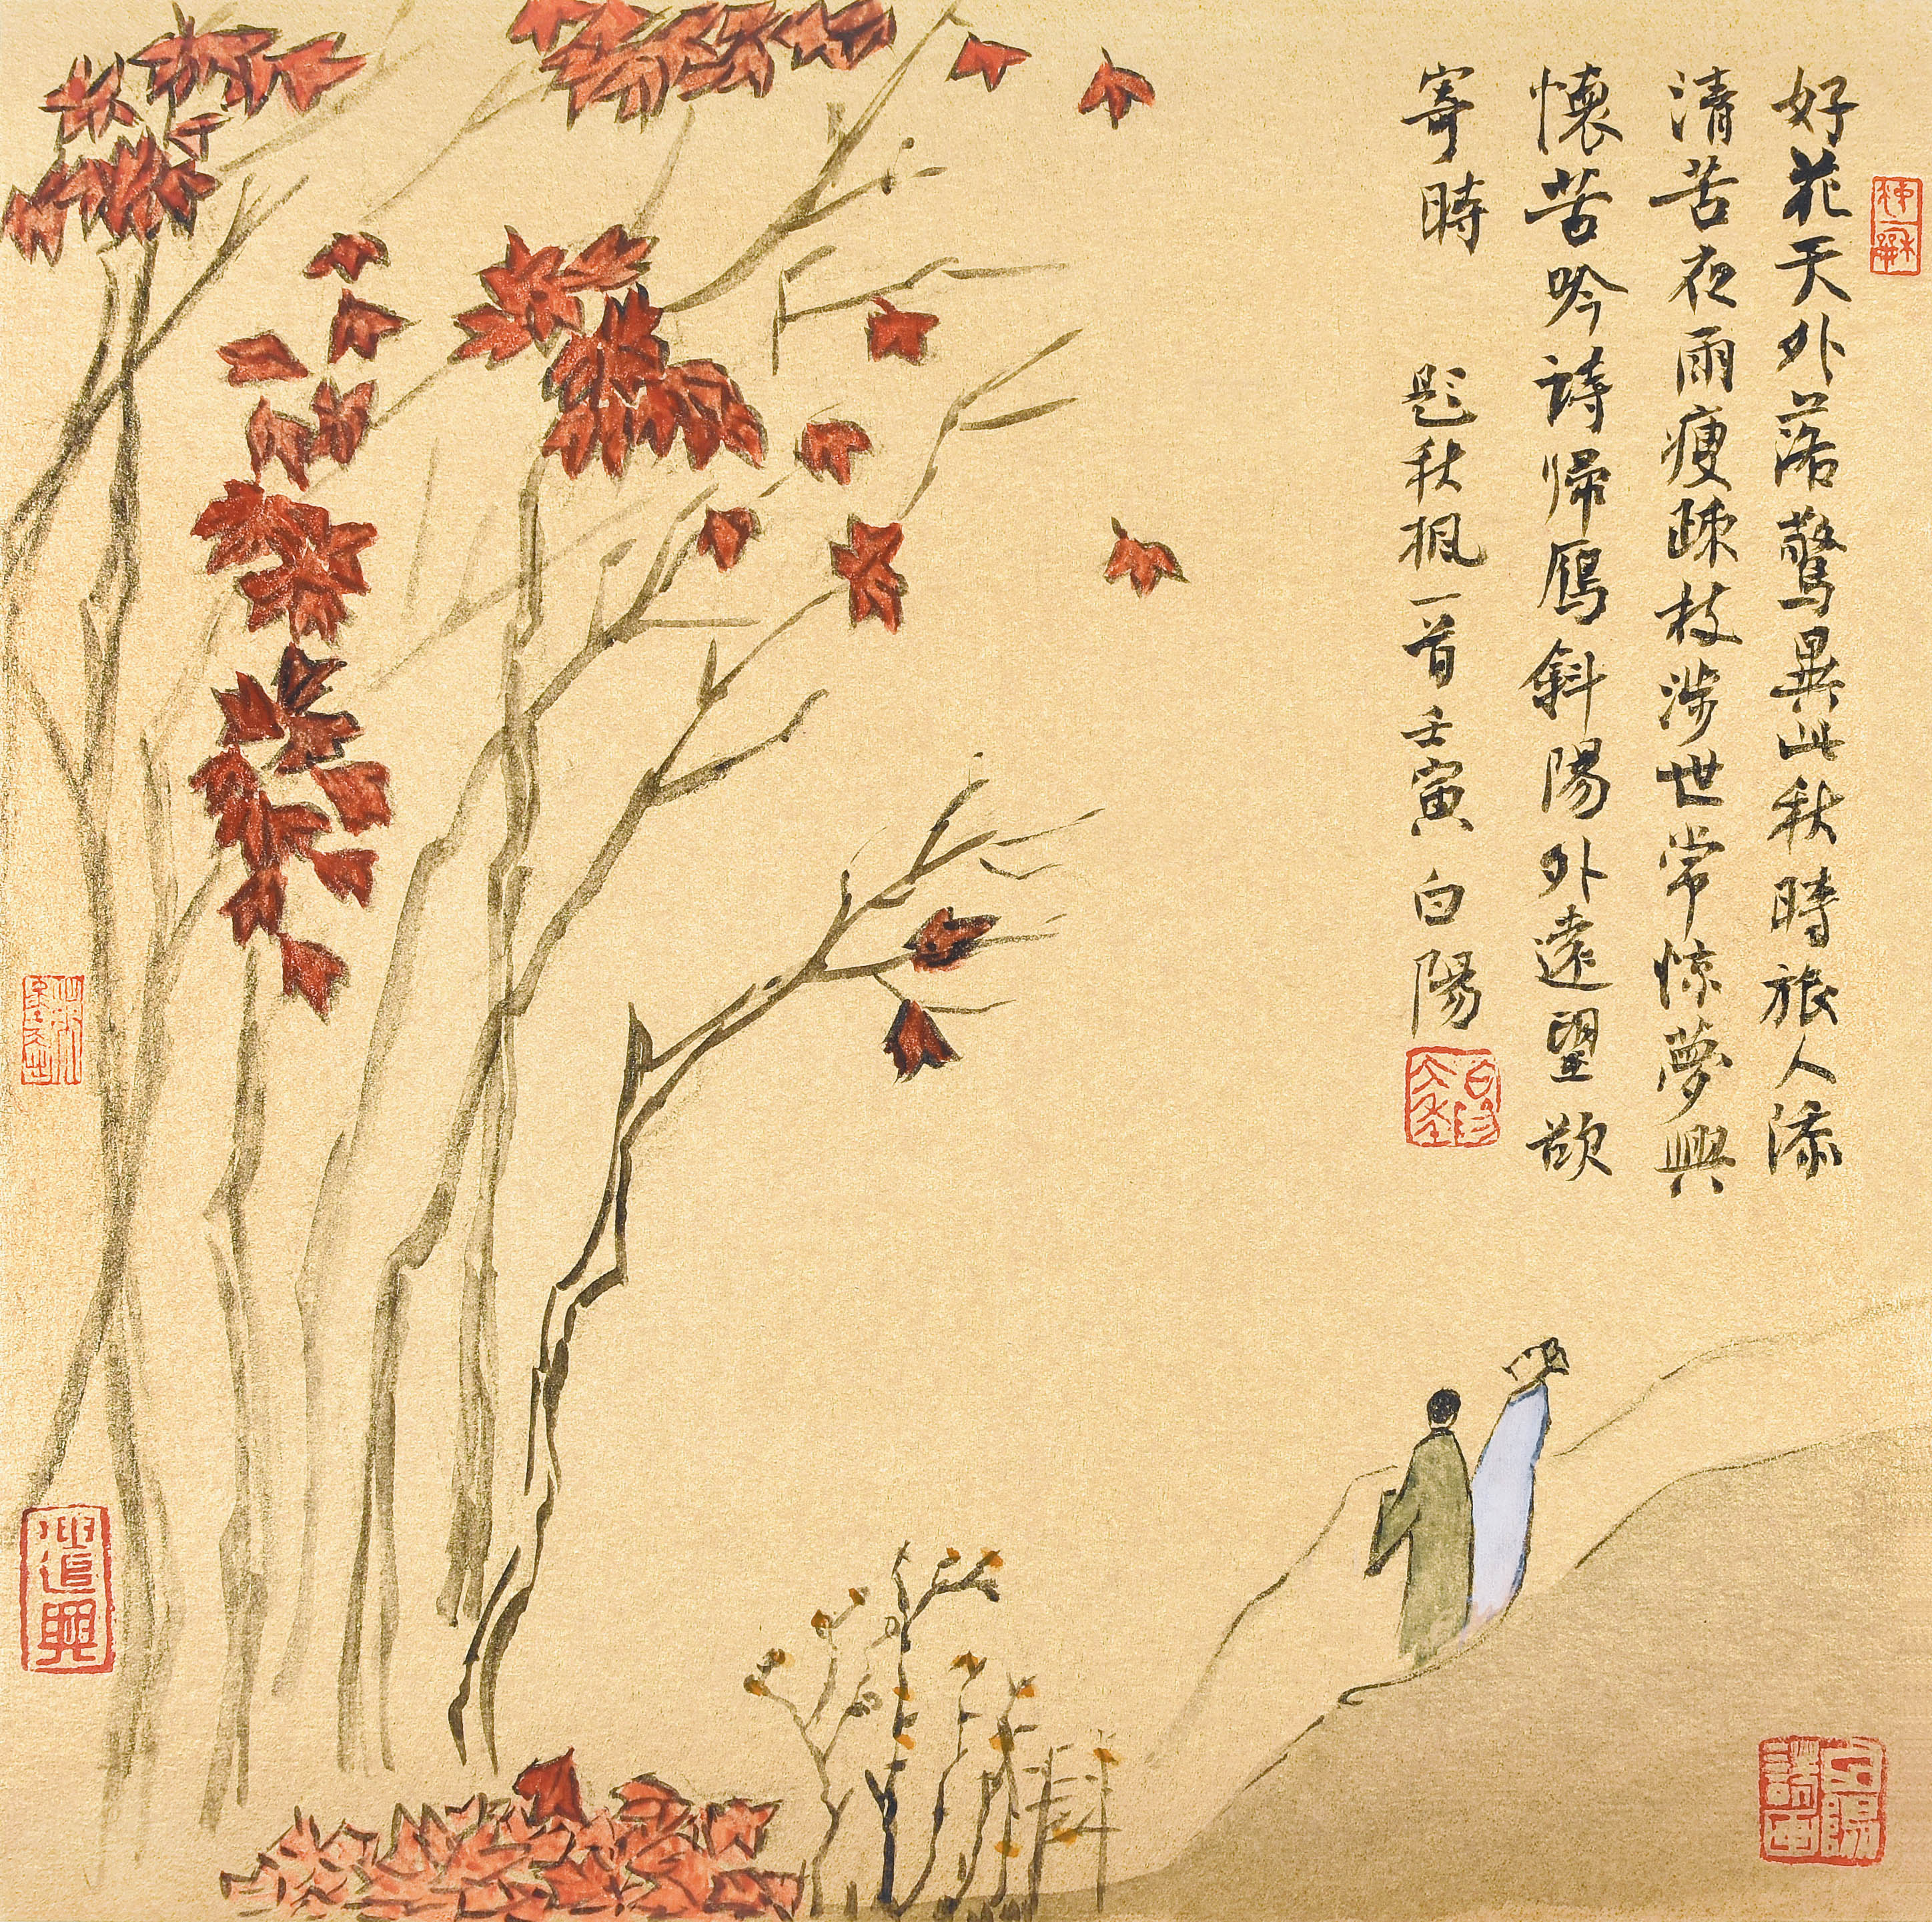 好花天外落驚異此秋時旅人添
清苦夜雨瘦疎枝涉世常惊夢興
懷苦吟詩歸鴈斜陽外遠望欲
寄時 題秋楓一首壬寅 白陽